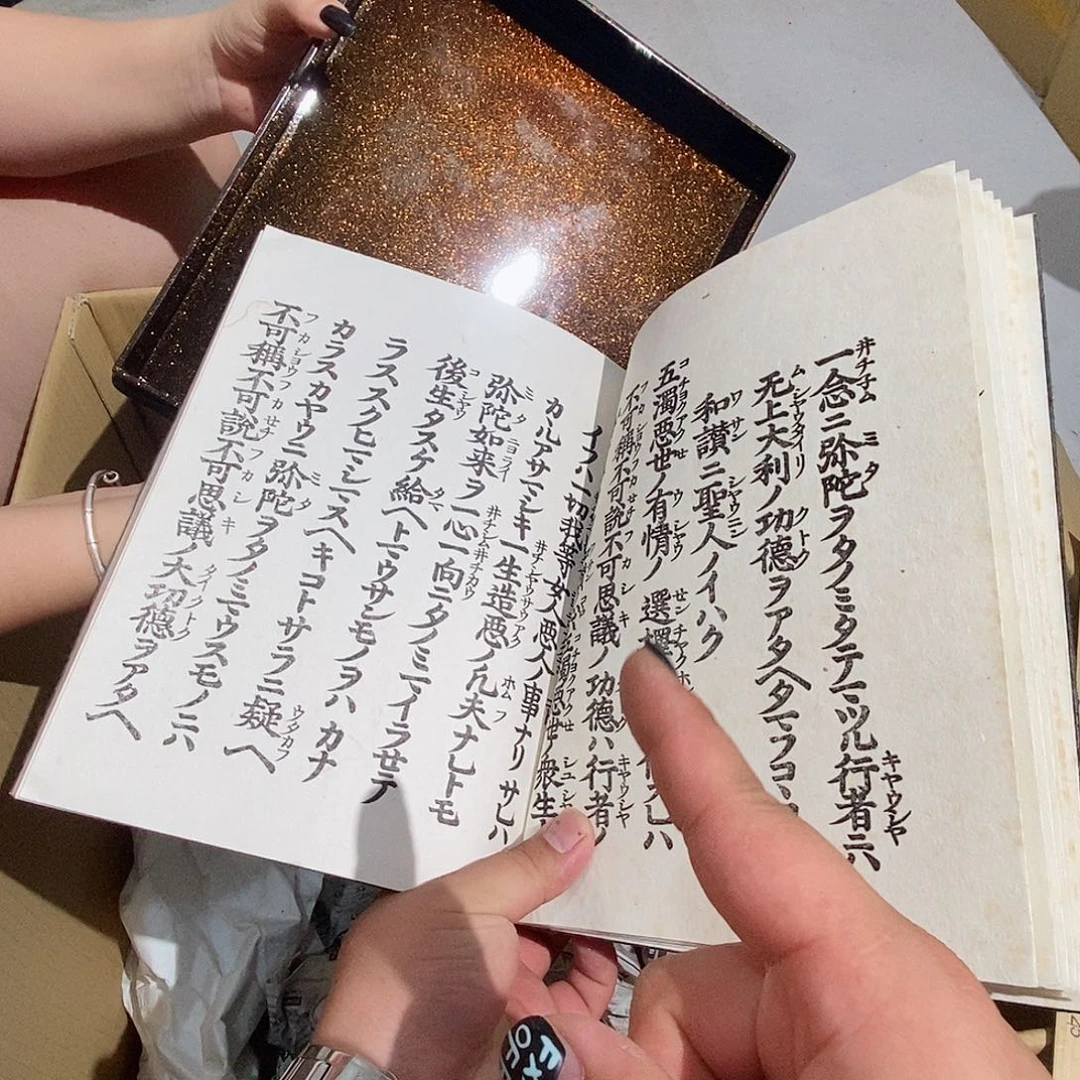 一念ニ弥陀ヲタノミタテマツル行者ニハ
无上大利ノ功德ヲアタヘタマフコ
和讃ニ聖人ノイハク
五濁悪世ノ有情ノ 選擇
不可稱不可説不可思議ノ功德ハ行者ノ
五濁悪世ノ衆生
イハ一切我等女人悪人事ナリ サレハ
カヽルアサマシキ一生造悪ノ凡夫ナレトモ
弥陀如来ヲ一心一向ニタノミマイラセテ
後生タスケ給ヘトマウサンモノヲハ カナ
ラススクヒマシマスヘキコトサラニ疑ヘ
カラスカヤウニ弥陀ヲタノミマウスモノニハ
不可稱不可説不可思議ノ大功德ヲアタヘ